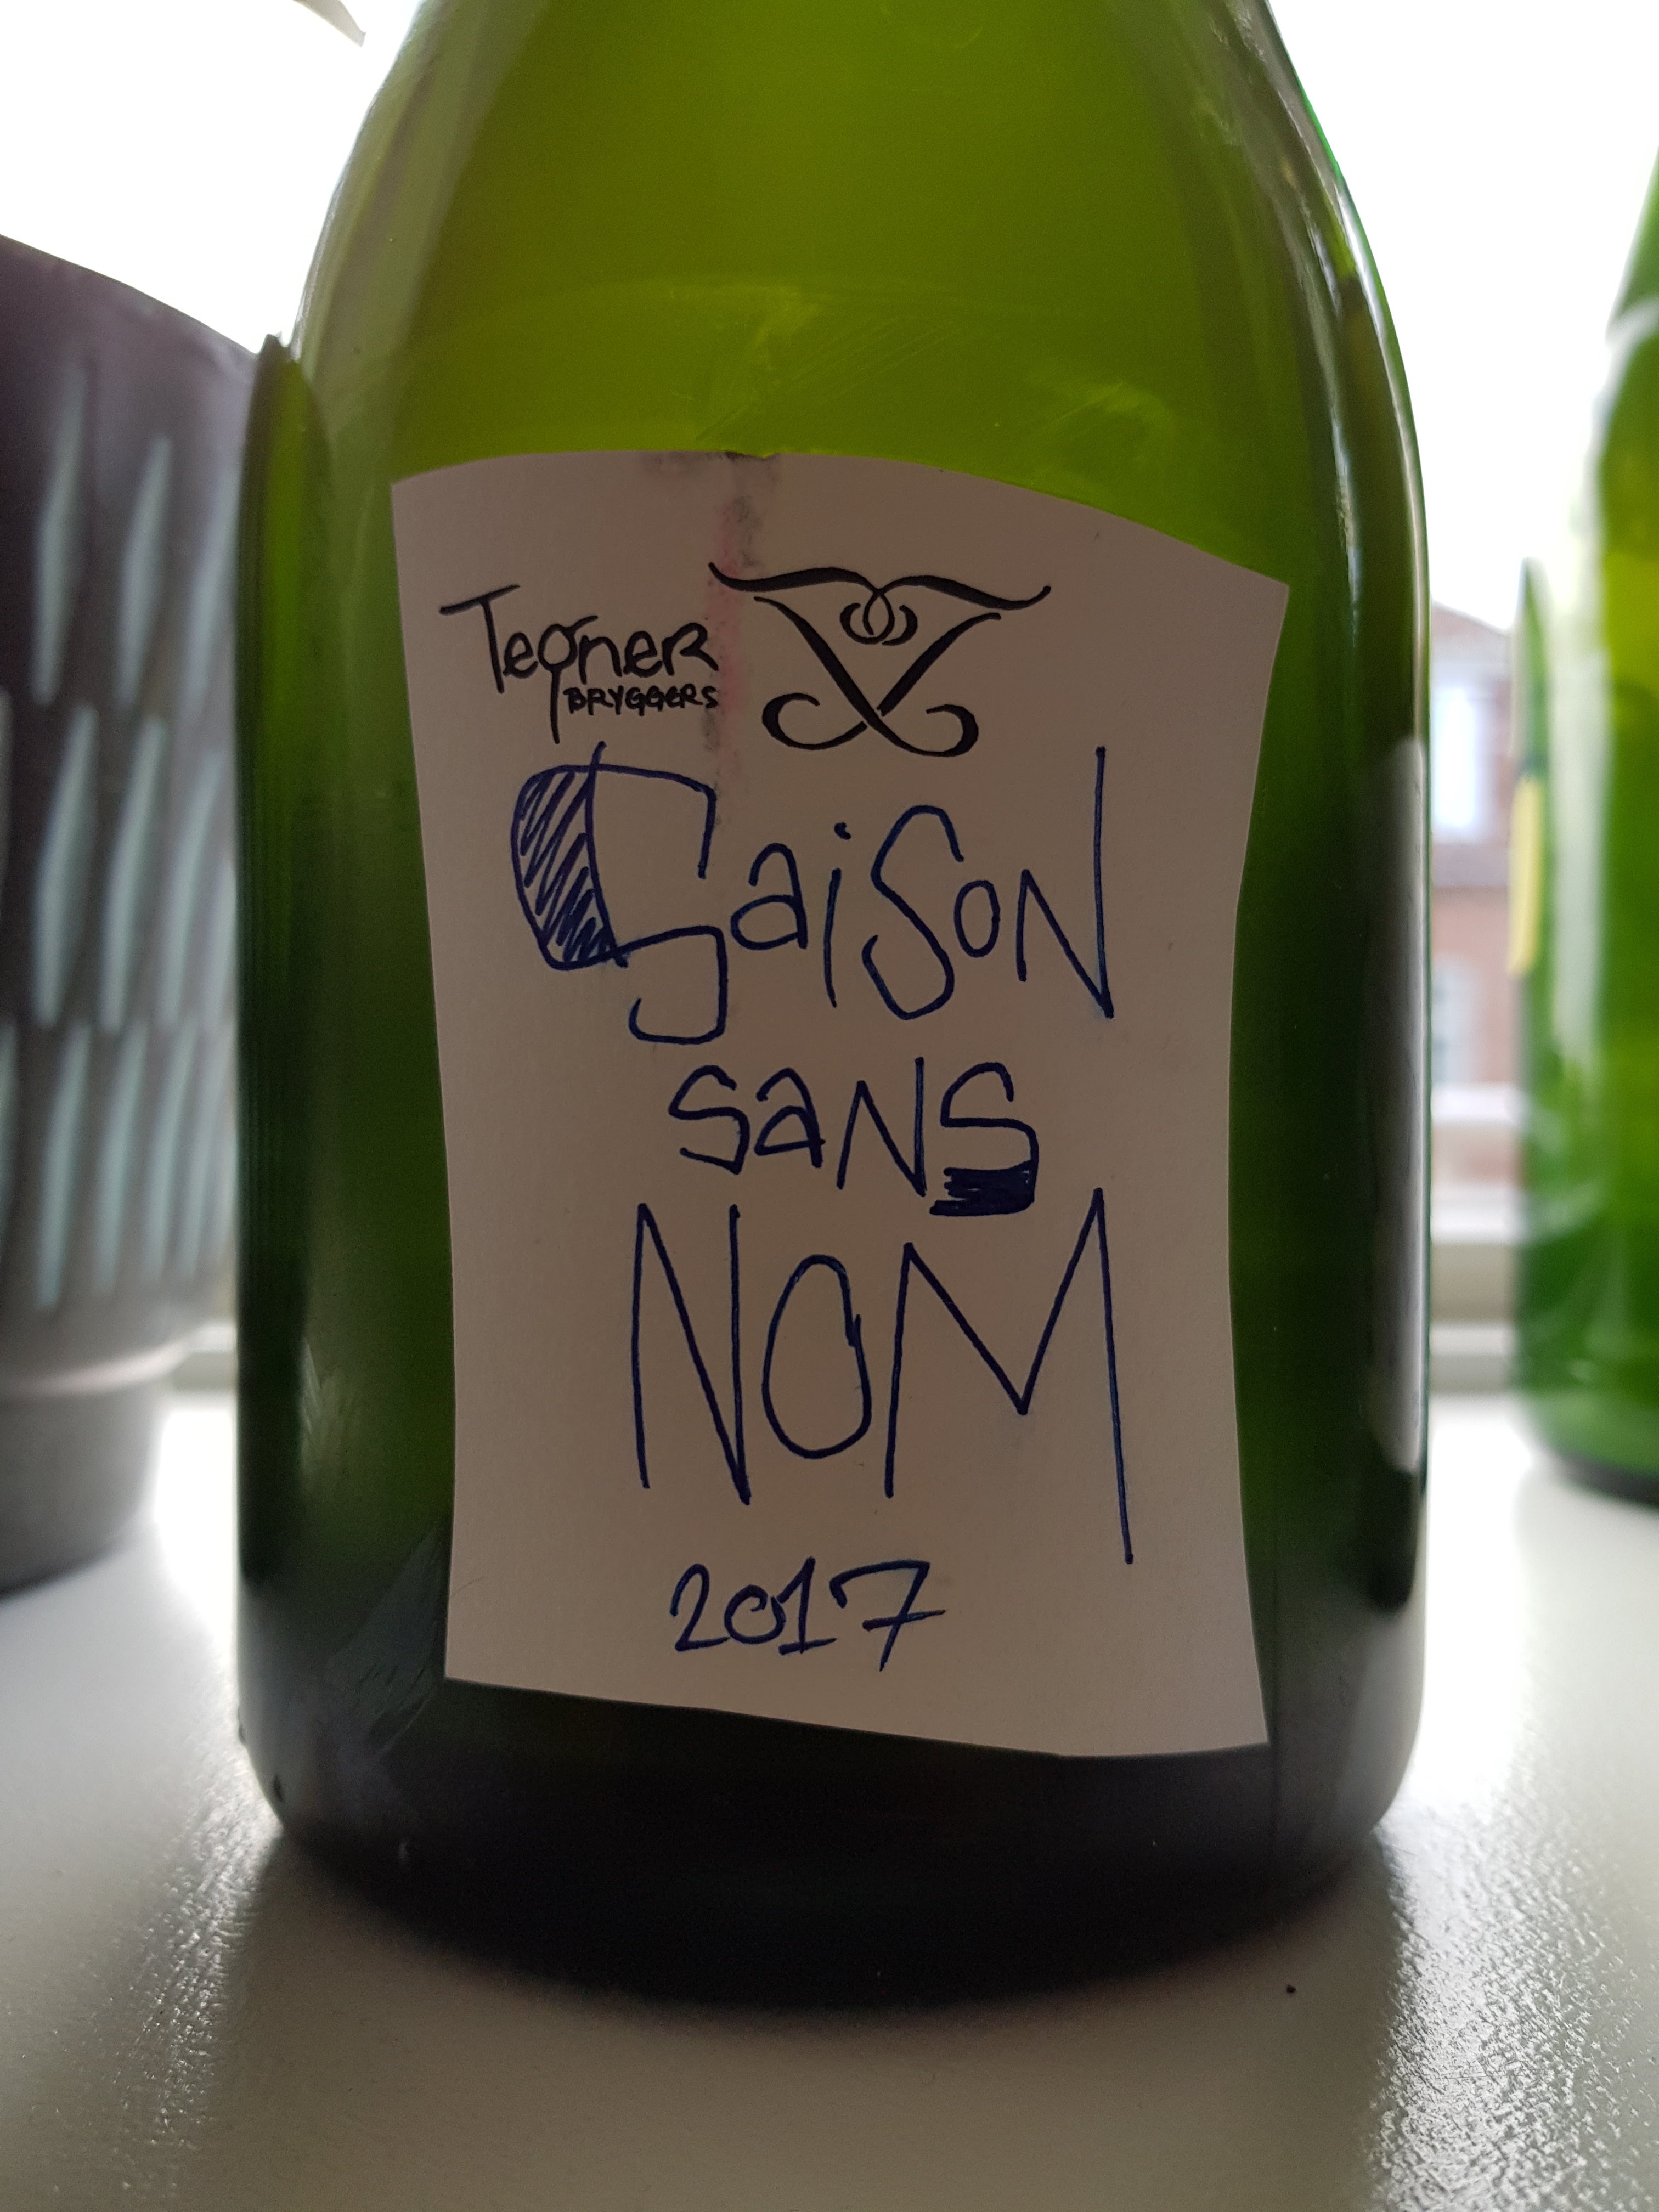 Tegner
BRYGGERS
Saison
sans
NOM
2017